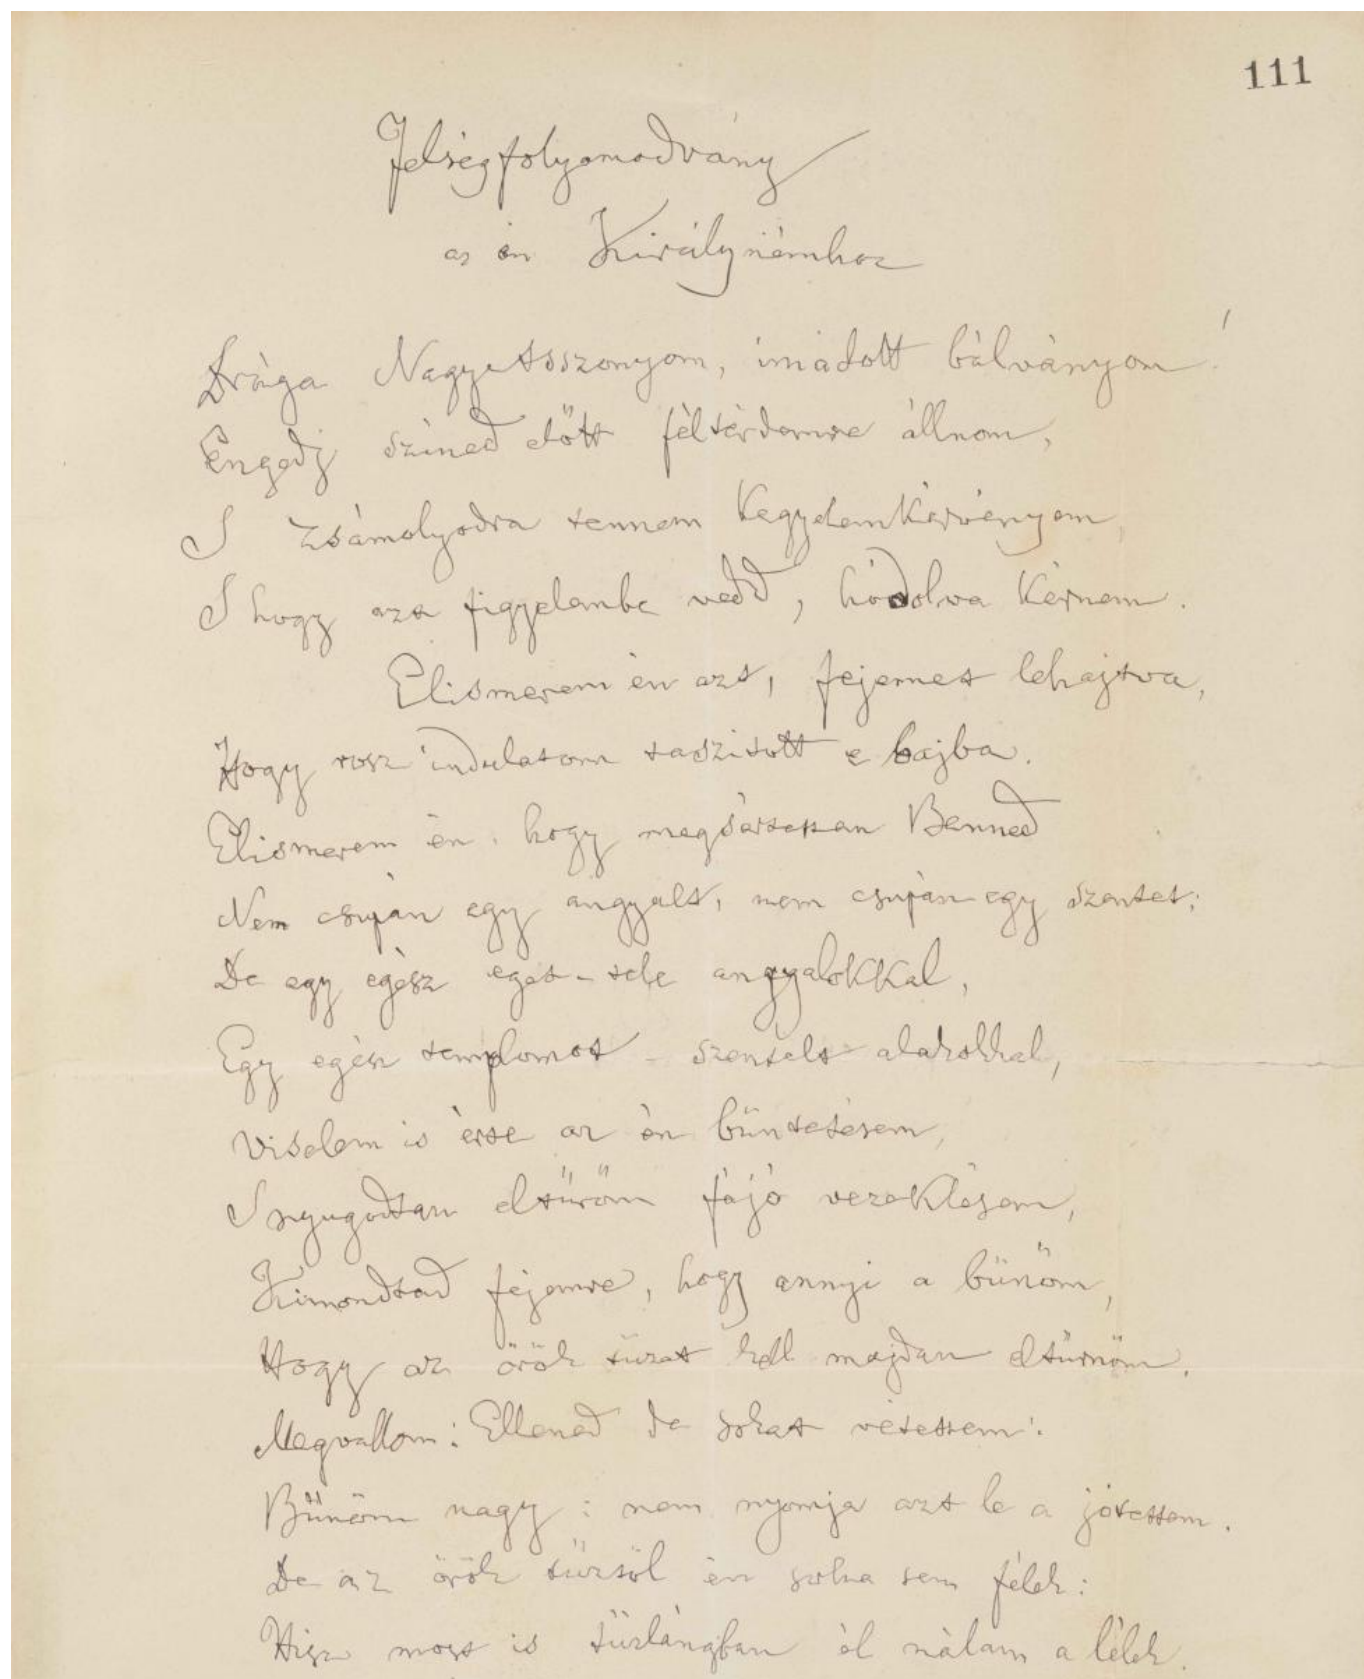 111
Felségfolyomodvány
az én Királynémhoz
Drága NagyAsszonyom, imádott bálványom!
Engedj színed előtt féltérdemre állnom,
S zsámolyodra tennem kegyelemkérvényem,
S hogy azt figyelembe vedd, hódolva kérnem.
Elismerem én azt, fejemet lehajtva,
Hogy rosz indulatom taszitott e bajba.
Elismerem én, hogy megsértettem Benned
Nem csupán egy angyalt, nem csupán egy szentet;
De egy egész eget – tele angyalokkal,
Egy egész templomot – szentelt alakokkal,
Viselem is érte az én büntetésem,
S nyugodtan eltűröm fájó vezeklésem,
Kimondtad fejemre, hogy annyi a bűnöm,
Hogy az örök tüzet kell majdan eltűrnöm.
Megvallom: Ellened de sokat vétettem!
Bűnöm nagy: nem nyomja azt le a jótettem.
De az örök tűztől én soha sem félek:
Hisz most is tűzlángban él nálam a lélek.